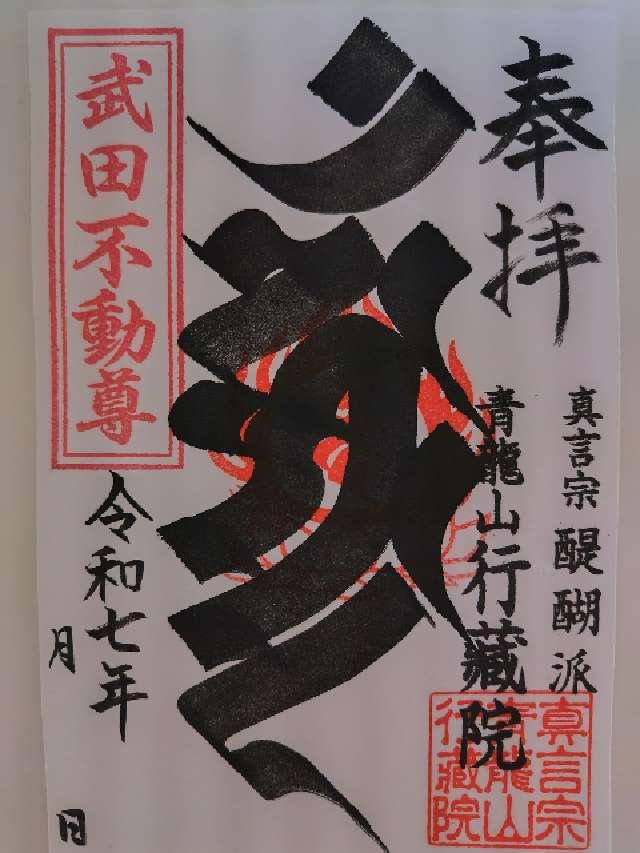 奉拝
真言宗醍醐派
青龍山行蔵院
武田不動尊
令和七年
月
日
真言宗
青龍山
行蔵院